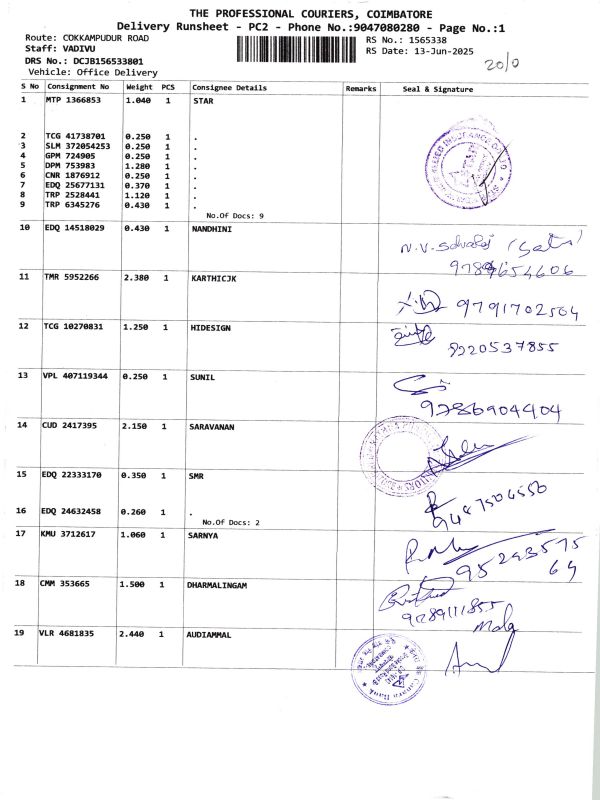 THE PROFESSIONAL COURIERS, COIMBATORE
Delivery Runsheet - PC2 - Phone No.:9047080280 - Page No.:1
Route: COKKAMPUDUR ROAD
RS No.: 1565338
Staff: VADIVU
RS Date: 13-Jun-2025
DRS No.: DCJB156533801
Vehicle: Office Delivery
20/0
S No Consignment No Weight PCS Consignee Details Remarks Seal & Signature
1 MTP 1366853 1.040 1 STAR
2 TCG 41738701 0.250 1 .
3 SLM 372054253 0.250 1 .
4 GPM 724905 0.250 1 .
5 DPM 753983 1.280 1 .
6 CNR 1876912 0.250 1 .
7 EDQ 25677131 0.370 1 .
8 TRP 2528441 1.120 1 .
9 TRP 6345276 0.430 1 .
No.Of Docs: 9
10 EDQ 14518029 0.430 1 NANDHINI
11 TMR 5952266 2.380 1 KARTHICJK
9791702504
12 TCG 10270831 1.250 1 HIDESIGN
9220537855
13 VPL 407119344 0.250 1 SUNIL
9786904404
14 CUD 2417395 2.150 1 SARAVANAN
15 EDQ 22333170 0.350 1 SMR
9487504550
16 EDQ 24632458 0.260 1 .
No.Of Docs: 2
17 KMU 3712617 1.060 1 SARNYA
95293575
64
18 CMM 353665 1.500 1 DHARMALINGAM
9789111855
Mala
19 VLR 4681835 2.440 1 AUDIAMMAL
Canara Bank